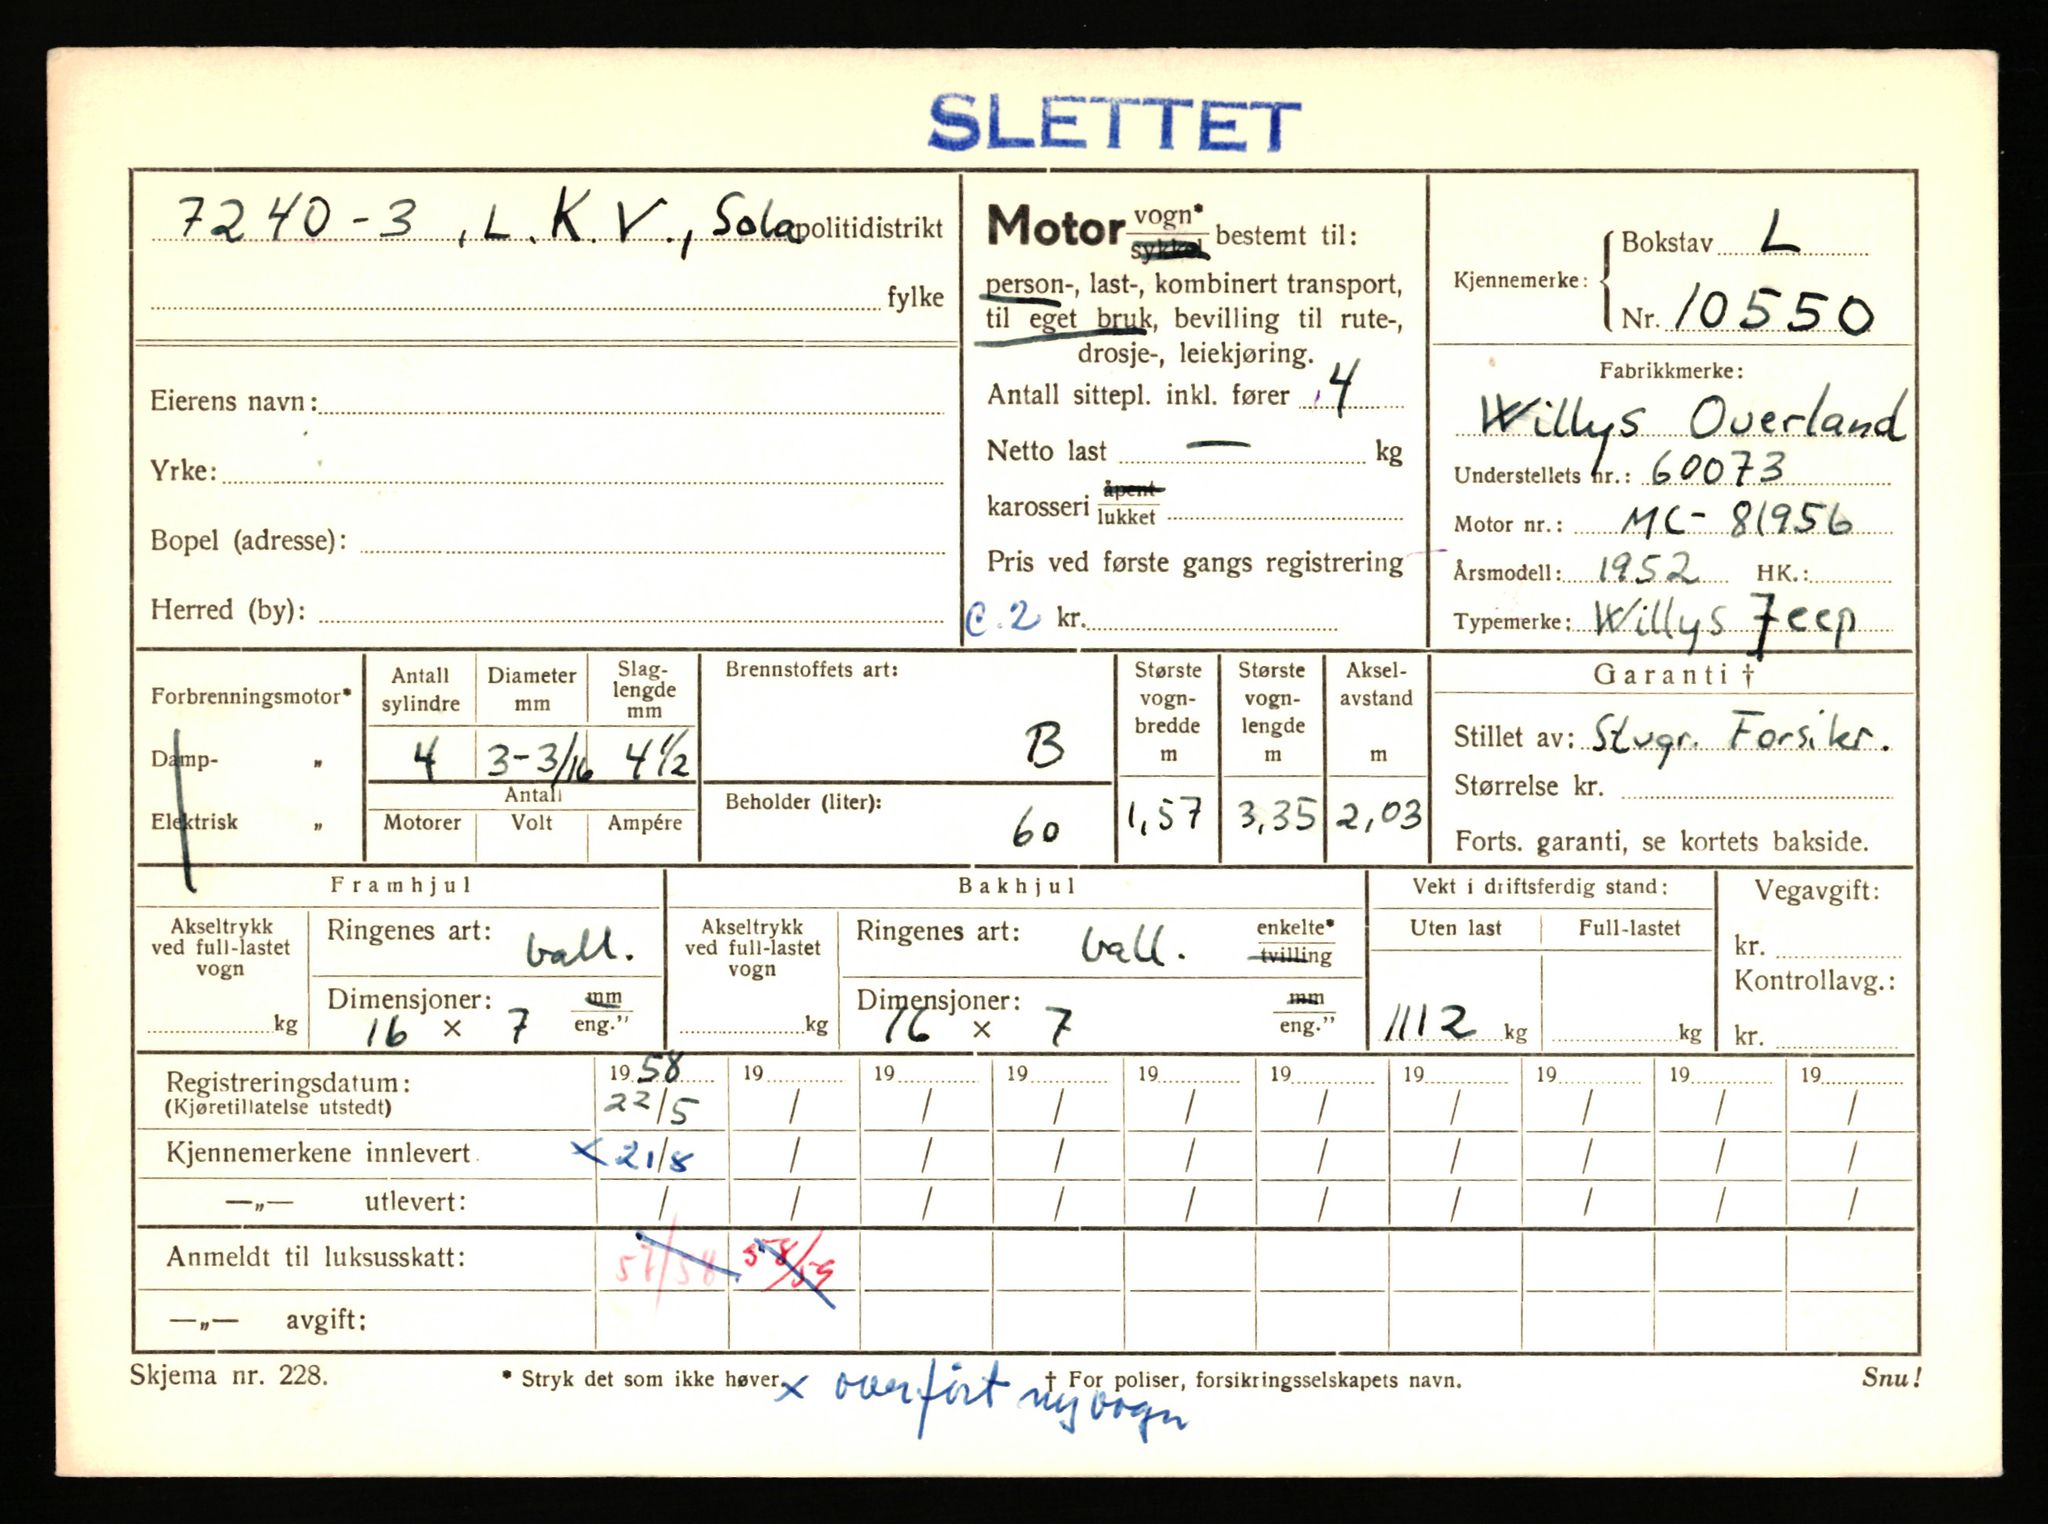 SLETTET
7240-3, L.K.V., Sola politidistrikt
fylke
Eierens navn:
Yrke:
Bopel (adresse):
Herred (by):
Motor vogn* sykkel bestemt til:
person-, last-, kombinert transport,
til eget bruk, bevilling til rute-,
drosje-, leiekjøring.
Antall sittepl. inkl. fører 4
Netto last — kg
karosseri åpent lukket
Pris ved første gangs registrering
C.2 kr.
Kjennemerke: Bokstav L
Nr. 10550
Fabrikkmerke:
Willys Overland
Understellets nr.: 60073
Motor nr.: MC-81956
Årsmodell: 1952 HK.:
Typemerke: Willys Jeep
Forbrenningsmotor*
Damp- „
Elektrisk „
Antall sylindre
4
Diameter mm
3-3/16
Slag-lengde mm
4 1/2
Antall
Motorer Volt Ampére
Brennstoffets art:
B
Beholder (liter):
60
Største vogn-bredde m
1,57
Største vogn-lengde m
3,35
Aksel-avstand m
2,03
Garanti †
Stillet av: Stvgr. Forsikr.
Størrelse kr.
Forts. garanti, se kortets bakside.
Framhjul
Akseltrykk
ved full-lastet
vogn
kg
Ringenes art: ball.
Dimensjoner: mm
16 × 7 eng."
Bakhjul
Akseltrykk
ved full-lastet
vogn
kg
Ringenes art: ball. enkelte* tvilling
Dimensjoner: mm
16 × 7 eng."
Vekt i driftsferdig stand:
Uten last Full-lastet
1112 kg kg
Vegavgift:
kr.
Kontrollavg.:
kr.
Registreringsdatum: 1958 19 19 19 19 19 19 19 19 19
(Kjøretillatelse utstedt) 22/5 / / / / / / / / /
Kjennemerkene innlevert × 21/8 / / / / / / / / /
—„— utlevert: / / / / / / / / / /
Anmeldt til luksusskatt: 57/58 58/59
—„— avgift:
Skjema nr. 228. * Stryk det som ikke høver. † For poliser, forsikringsselskapets navn. Snu!
× overført ny vogn